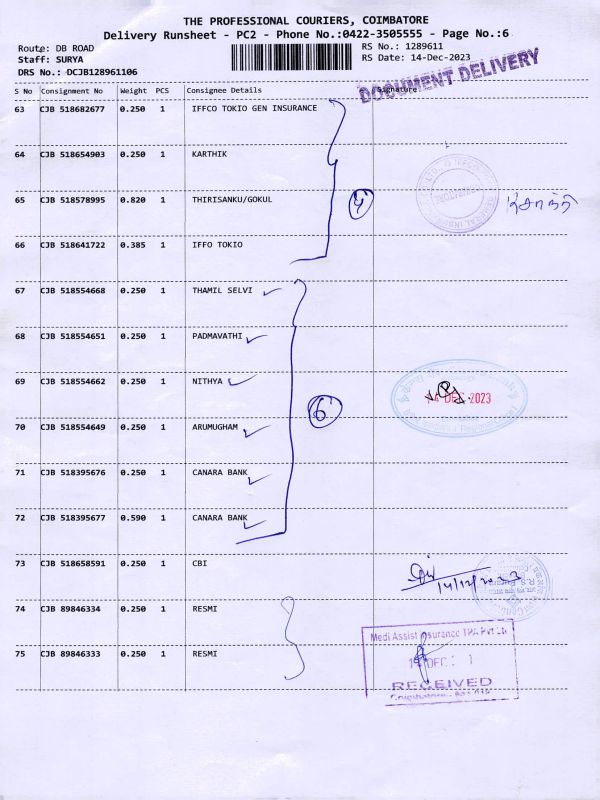 THE PROFESSIONAL COURIERS, COIMBATORE
Delivery Runsheet - PC2 - Phone No.:0422-3505555 - Page No.:6
Route: DB ROAD
RS No.: 1289611
Staff: SURYA
RS Date: 14-Dec-2023
DRS No.: DCJB128961106
DOCUMENT DELIVERY
S No Consignment No Weight PCS Consignee Details Signature
63 CJB 518682677 0.250 1 IFFCO TOKIO GEN INSURANCE
64 CJB 518654903 0.250 1 KARTHIK
65 CJB 518578995 0.820 1 THIRISANKU/GOKUL
4
66 CJB 518641722 0.385 1 IFFO TOKIO
67 CJB 518554668 0.250 1 THAMIL SELVI
68 CJB 518554651 0.250 1 PADMAVATHI
69 CJB 518554662 0.250 1 NITHYA
14 DEC 2023
6
70 CJB 518554649 0.250 1 ARUMUGHAM
71 CJB 518395676 0.250 1 CANARA BANK
72 CJB 518395677 0.590 1 CANARA BANK
73 CJB 518658591 0.250 1 CBI
14/12/2023
74 CJB 89846334 0.250 1 RESMI
Medi Assist Insurance TPA Pvt Ltd
75 CJB 89846333 0.250 1 RESMI
DEC
RECEIVED